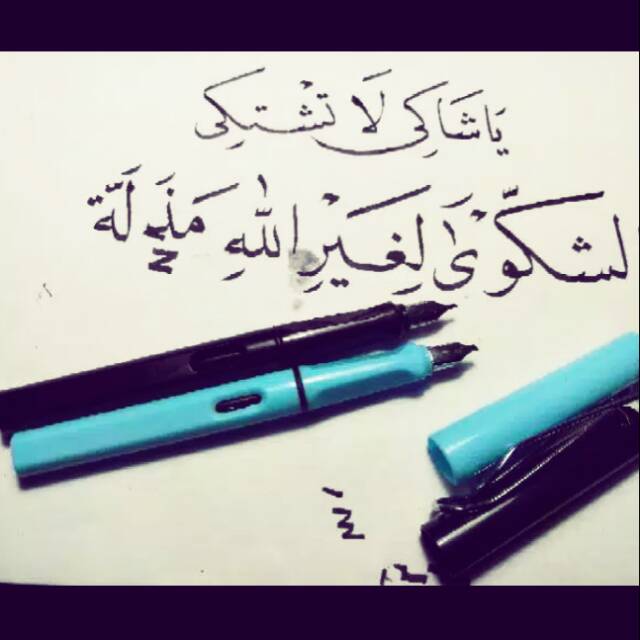 يَا شَاكِي لَا تَشْتكِي
الشكوّْىٰ لِغَيْرِ اللّٰهِ مَذَلَّة